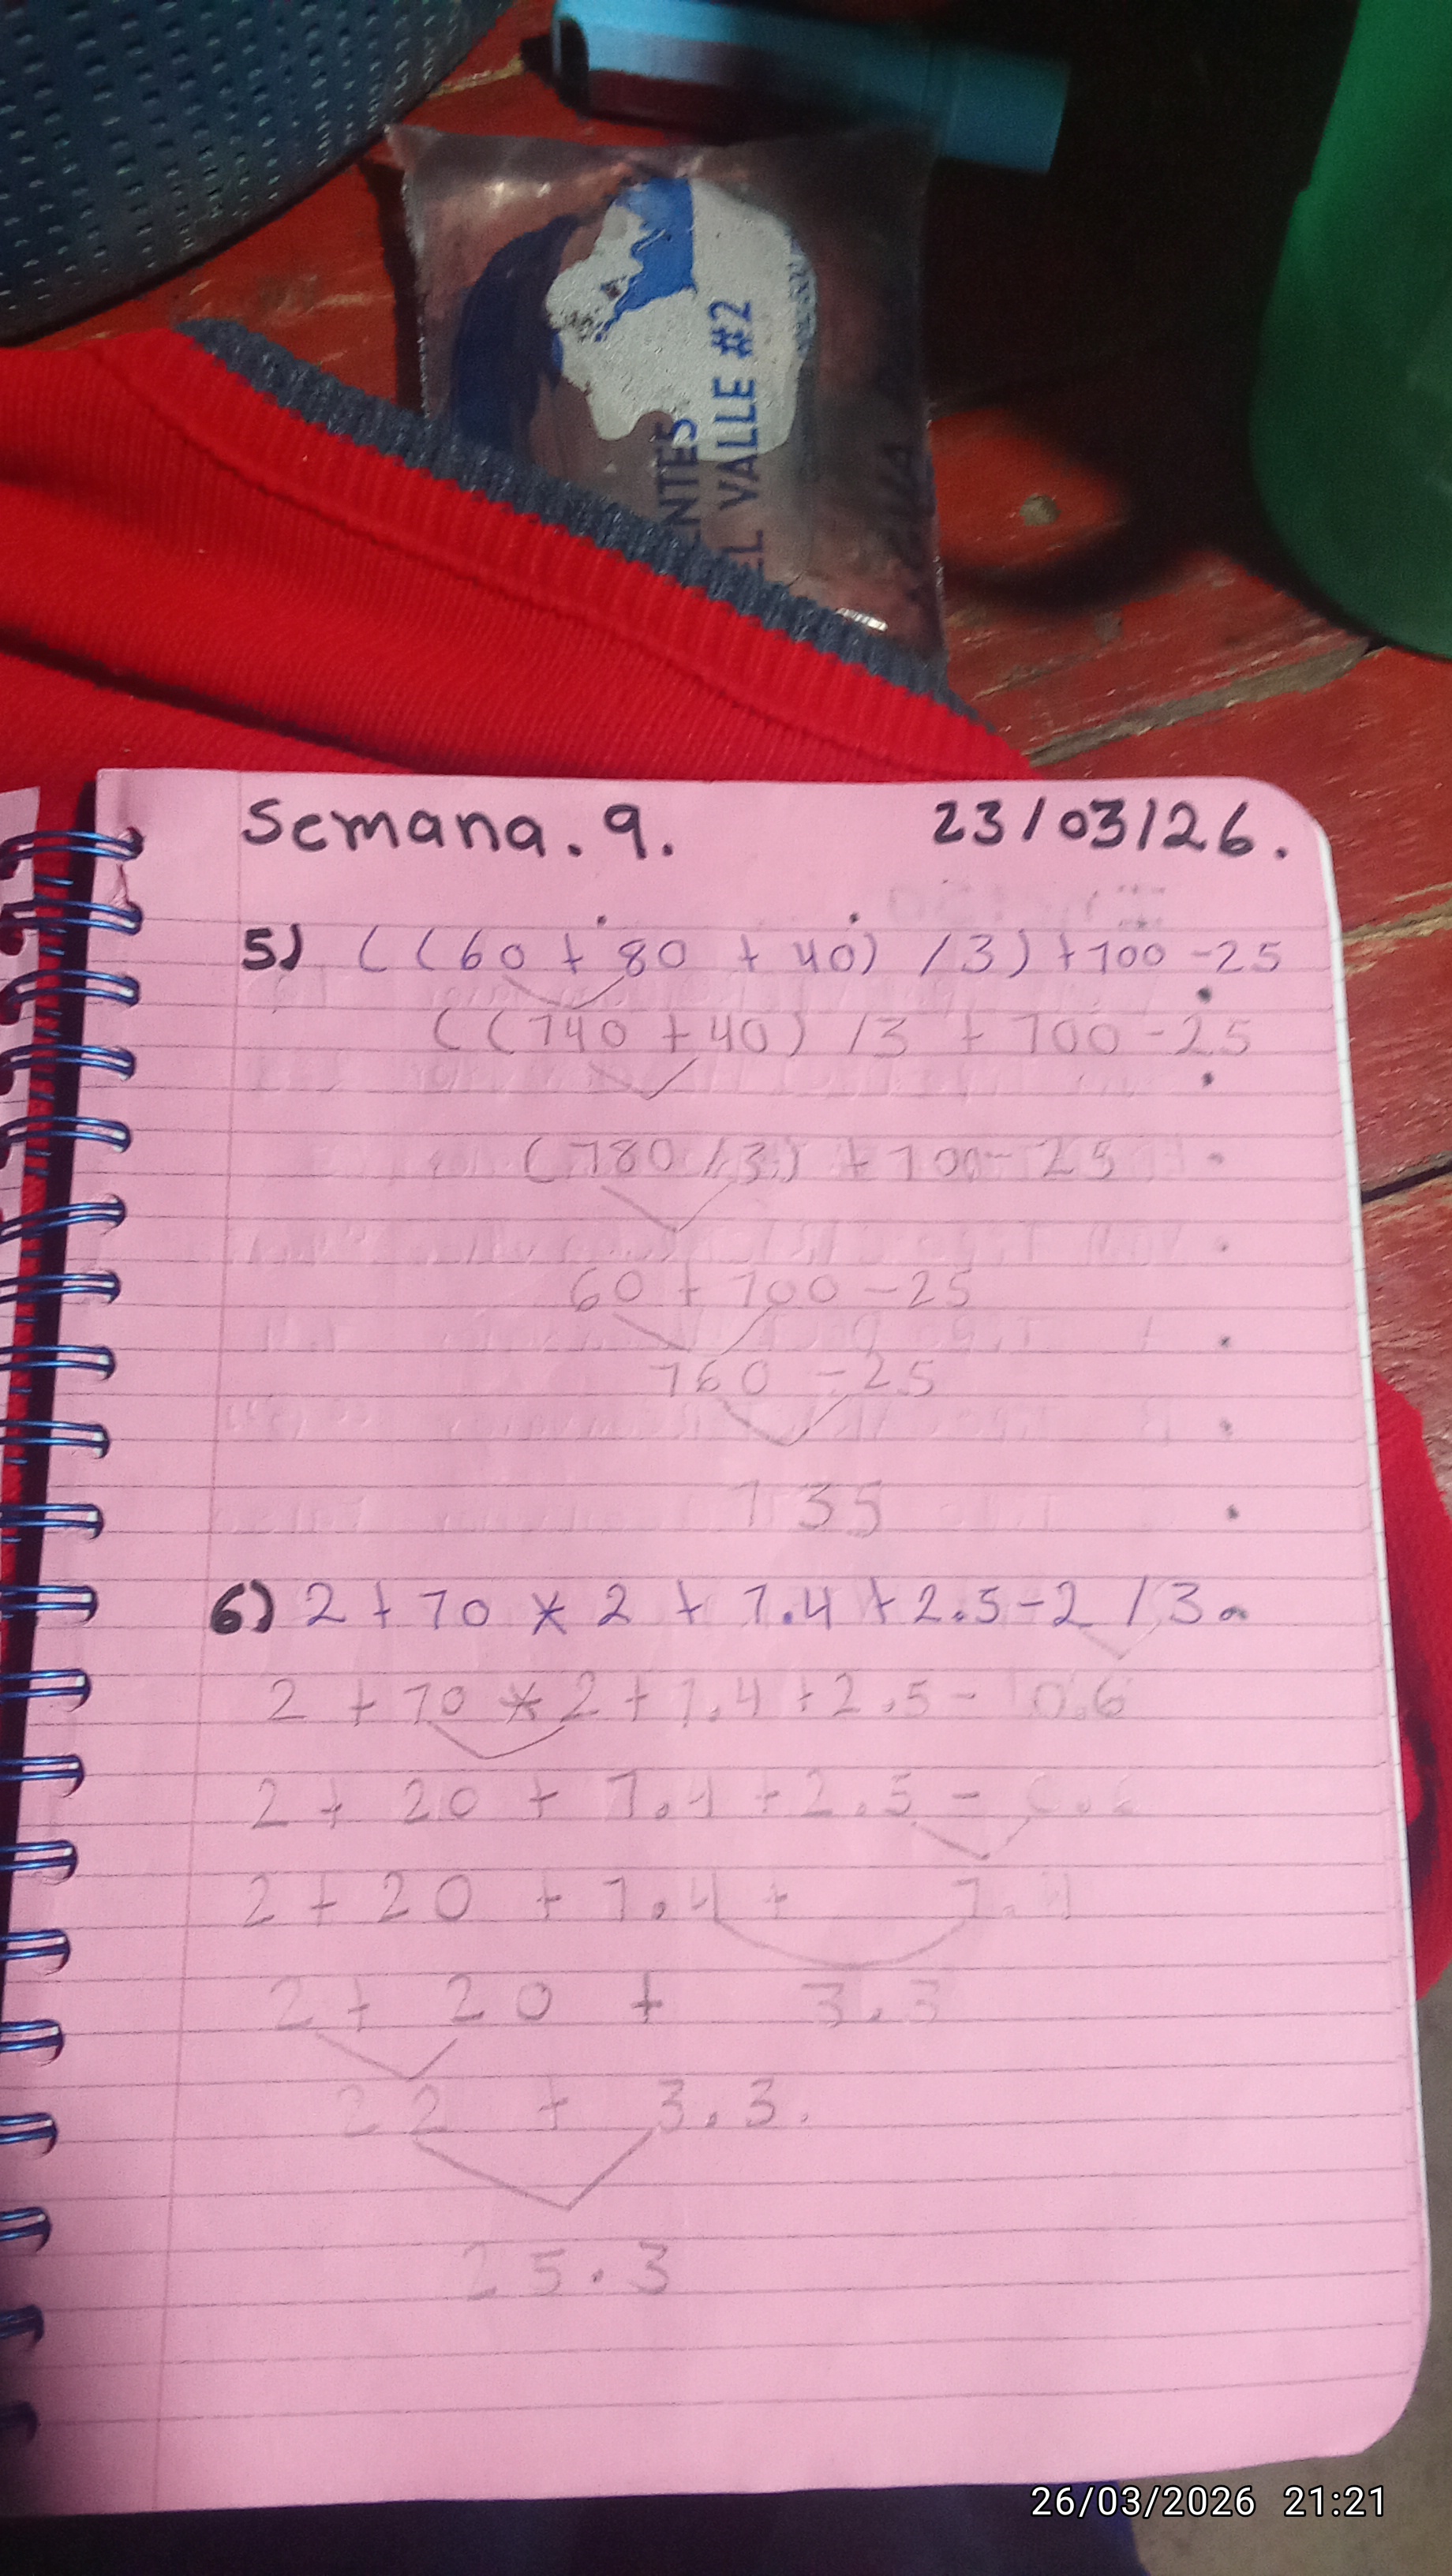 ENTES
EL VALLE #2
AGUA
Semana. 9. 23/03/26.
5) ((60 + 80 + 40) /3) + 100 - 25
((140 + 40) /3 + 100 - 25
(180 /3) + 100 - 25
60 + 100 - 25
160 - 25
135
6) 2 + 10 * 2 + 1.4 + 2.5 - 2 / 3.
2 + 10 * 2 + 1.4 + 2.5 - 0.6
2 + 20 + 1.4 + 2.5 - 0.6
2 + 20 + 1.4 + 1.9
2 + 20 + 3.3
22 + 3.3.
25.3
26/03/2026 21:21